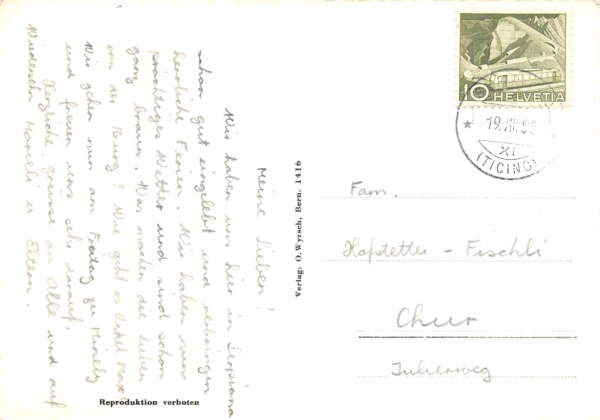 Meine Lieben!
Wir haben uns hier in
schon gut eingelebt und verbringen
herrliche Ferien. Wir haben nun
prächtiges Wetter und sind schon
ganz braun. Was machen die Lieben
von der Burg? Wie geht es Onkel Max?
Wir gehen nun am Freitag zu
und freuen uns sehr darauf.
Herzliche Grüsse an Alle und auf
Wiedersehn Marieli u. Eltern.
Reproduktion verboten
Verlag: O. Wyrsch, Bern. 1416
10 HELVETIA
XI
(TICINO)
Fam.
Hofstetter - Fischli
Chur
Julierweg